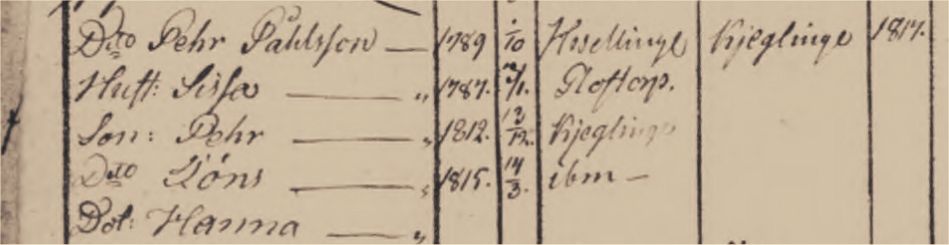 Dito Pehr Påhlsson — 1789 1/10 Hvellinge Kjeglinge 1817.
Hust: Sissa — „ 1787. /1. Glostorp.
Son: Pehr — „ 1812. 13/12. Kjeglinge
Dito Jöns — „ 1815. 14/3. ibm —
Dot: Hanna — „